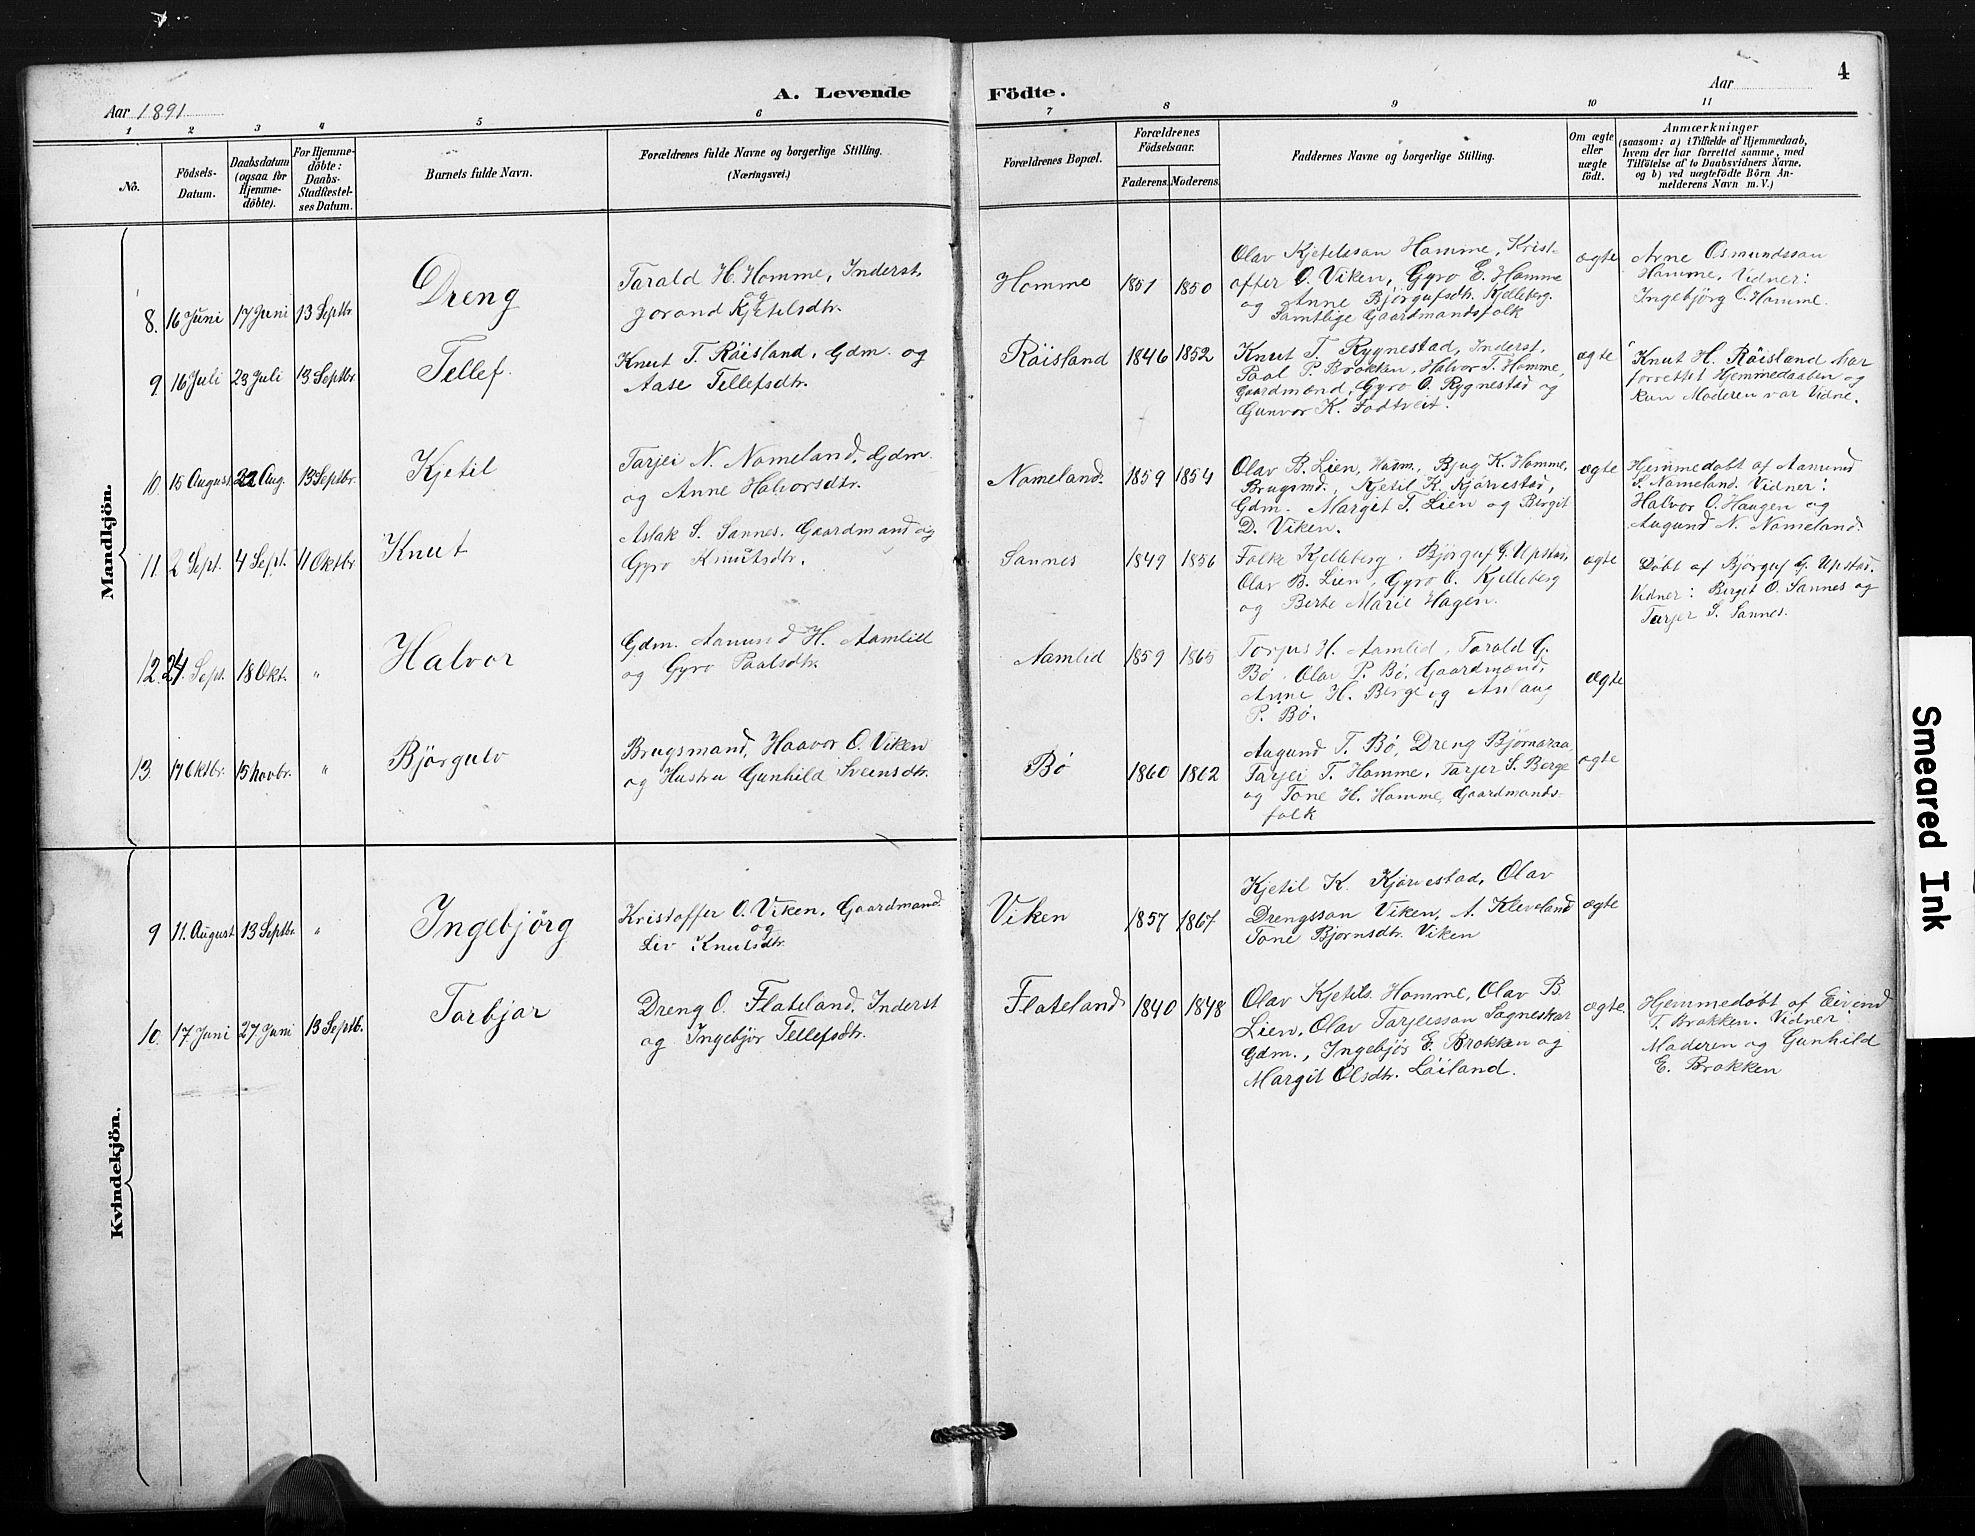 4
Aar 1891
A. Levende
Födte.
Aar
1 2 3 4 5 6 7 8 9 10 11
No.
Födsels-
Datum.
Daabsdatum
(ogsaa for
Hjemme-
döbte).
For Hjemme-
döbte:
Daabs-
Stadfæstel-
ses Datum.
Barnets fulde Navn.
Forældrenes fulde Navne og borgerlige Stilling.
(Næringsvei.)
Forældrenes Bopæl.
Forældrenes
Födselsaar.
Faderens. Moderens.
Faddernes Navne og borgerlige Stilling.
Om ægte
eller
uægte
födt.
Anmærkninger
(saasom: a) i Tilfælde af Hjemmedaab,
hvem der har forrettet samme, med
Tilföielse af to Daabsvidners Navne,
og b) ved uægtefödte Börn An-
melderens Navn m. V.)
Mandkjön.
8. 16 Juni 17 Juni 13 Septbr
Dreng
Tarald H. Homme, Inderst,
og
Jorand Kjetilsdtr.
Homme 1851 1850
Olav Kjetelssan Homme, Krist-
offer O. Viken, Gyro E. Homme
og Anne Björgufsdtr. Kjelleberg.
Samtlige Gaardmandsfolk
ægte
Arne Osmundsson
Homme, Vidner:
Ingebjörg O. Homme.
9. 16 Juli 23 Juli 13 Septbr
Tellef.
Knut T. Röisland, Gdm. og
Aase Tellefsdtr.
Röisland 1846 1852
Knut T. Rygnestad, Inderst,
Paal P. Brokken, Halvor T. Homme,
Gaardmænd, Gyro O. Rygnestad og
Gunvor K. Fodtveit.
ægte
Knut H. Röisland har
forrettet Hjemmedaaben og
kun Moderen var Vidne.
10. 15 August 22 Aug. 13 Septbr.
Kjetil
Tarjei N. Nomeland, Gdm
og Anne Halvorsdtr.
Nomeland. 1859 1854
Olav B. Lien, Husm., Bjug K. Homme,
Brugsmd., Kjetil K. Kjörvestad,
Gdm. Margit T. Lien og Birgit
D. Viken.
ægte
Hjemmedøbt af Aamund
S. Nomeland. Vidner:
Halvor O. Haugen og
Augund N. Nomeland.
11. 2 Sept. 4 Sept. 11 Oktbr
Knut
Aslak S. Sannes, Gaardmand og
Gyro Knutsdtr.
Sannes 1849 1856
Folke Kjelleberg, Björguf G. Upstad,
Olav B. Lien, Gyro O. Kjelleberg
og Berte Marie Hagen.
ægte
Døbt af Björguf G. Upstad.
Vidner: Birgit O. Sannes og
Tarjer S. Sannes.
12. 24. Sept. 18 Okt. "
Halvor
Gdm. Aamund H. Aamlid
og Gyro Paalsdtr.
Aamlid 1859 1865
Torjus H. Aamlid, Tarald G.
Bö, Olav P. Bö, Gaardmænd,
Anne H. Berge og Aslaug
P. Bö.
ægte
13. 17 Oktbr. 15 Novbr. "
Björgulv
Brugsmand, Haavor O. Viken
og Hustru Gunhild Sveinsdtr.
Bö 1860 1862
Augund T. Bö, Dreng Björnaraa,
Tarjei T. Homme, Tarjer S. Berge
og Tone H. Homme, Gaardmands-
folk
ægte
Kvindekjön.
9 11. August 13 Septbr. "
Ingebjörg
Kristoffer O. Viken, Gaardmand
og
Liv Knutsdtr.
Viken 1857 1867
Kjetil K. Kjörvestad, Olav
Drengsson Viken, A. Kleveland
Tone Bjornsdtr. Viken
ægte
10. 17 Juni 27 Juni 13 Septb.
Torbjør
Dreng O. Flateland, Inderst
og Ingebjör Tellefsdtr.
Flateland 1840 1848
Olav Kjetils. Homme, Olav B.
Lien, Olav Tarjeisson Sagneskar
Gdm., Ingebjör E. Brokken og
Margit Olsdtr. Löiland.
ægte.
Hjemmedøbt af Eivind
T. Brokken. Vidner:
Moderen og Gunhild
E. Brokken
Smeared Ink